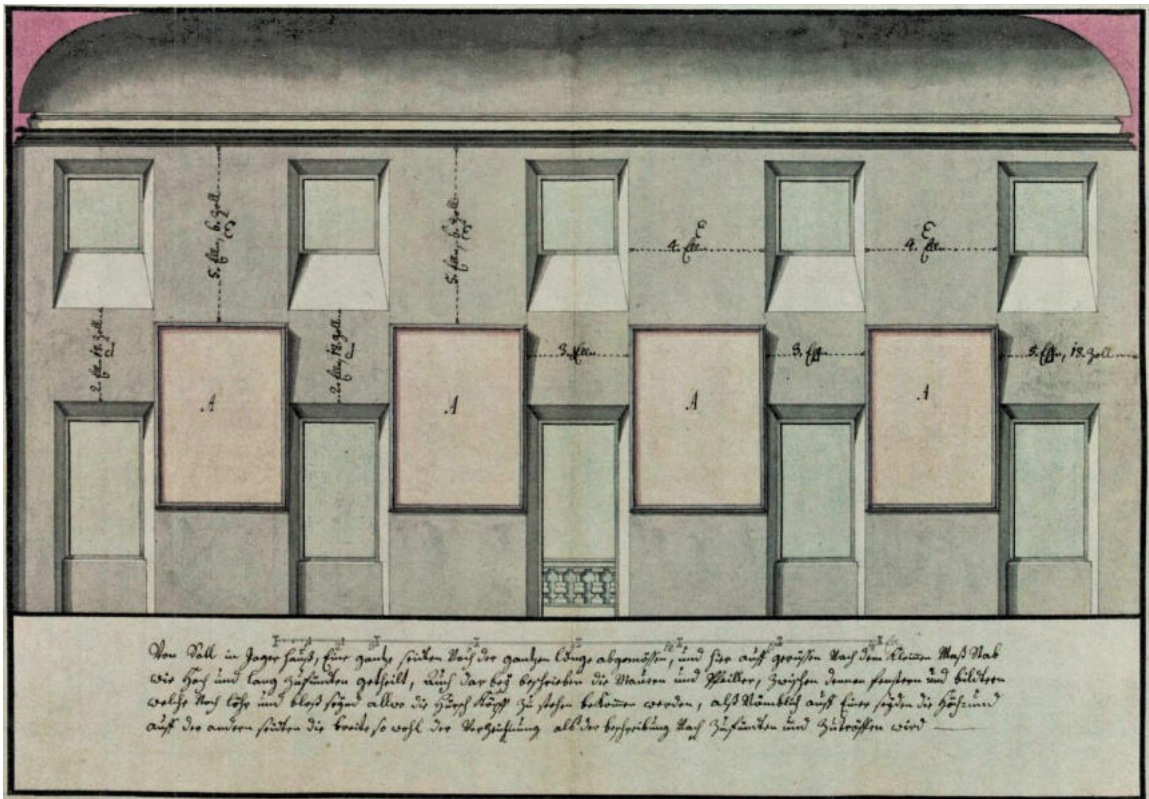 5. Elln, 6. Zoll
E
5. Elln, 6. Zoll
E
E
4. Elln
E
4. Elln
2. Elln 18. Zoll
2. Elln, 18. Zoll
3. Elln
3. Elln
5. Elln, 18. Zoll
A
A
A
A
Von Sall in Jager Hauß, Eine gantze seiten Nach der gantzen länge abgemössen, und hier auff gerissen Nach dem Kleinen Maß Stab
wie Hoch und lang Zufünden getheilt, Auch dar bey beschrieben die Mauren und Pfeiller, Zwischen denen fenstern und bildtern
welche Noch löhr und bloß seynd allwo die Hirsch Köpff Zu stehen bekomen werden, alß Nömblich auff Einer seyden die Höh: und
auff der andern seiten die breite so wohl der Verzeichnung als der beschreibung Nach Zufünden und Zuträffen wird